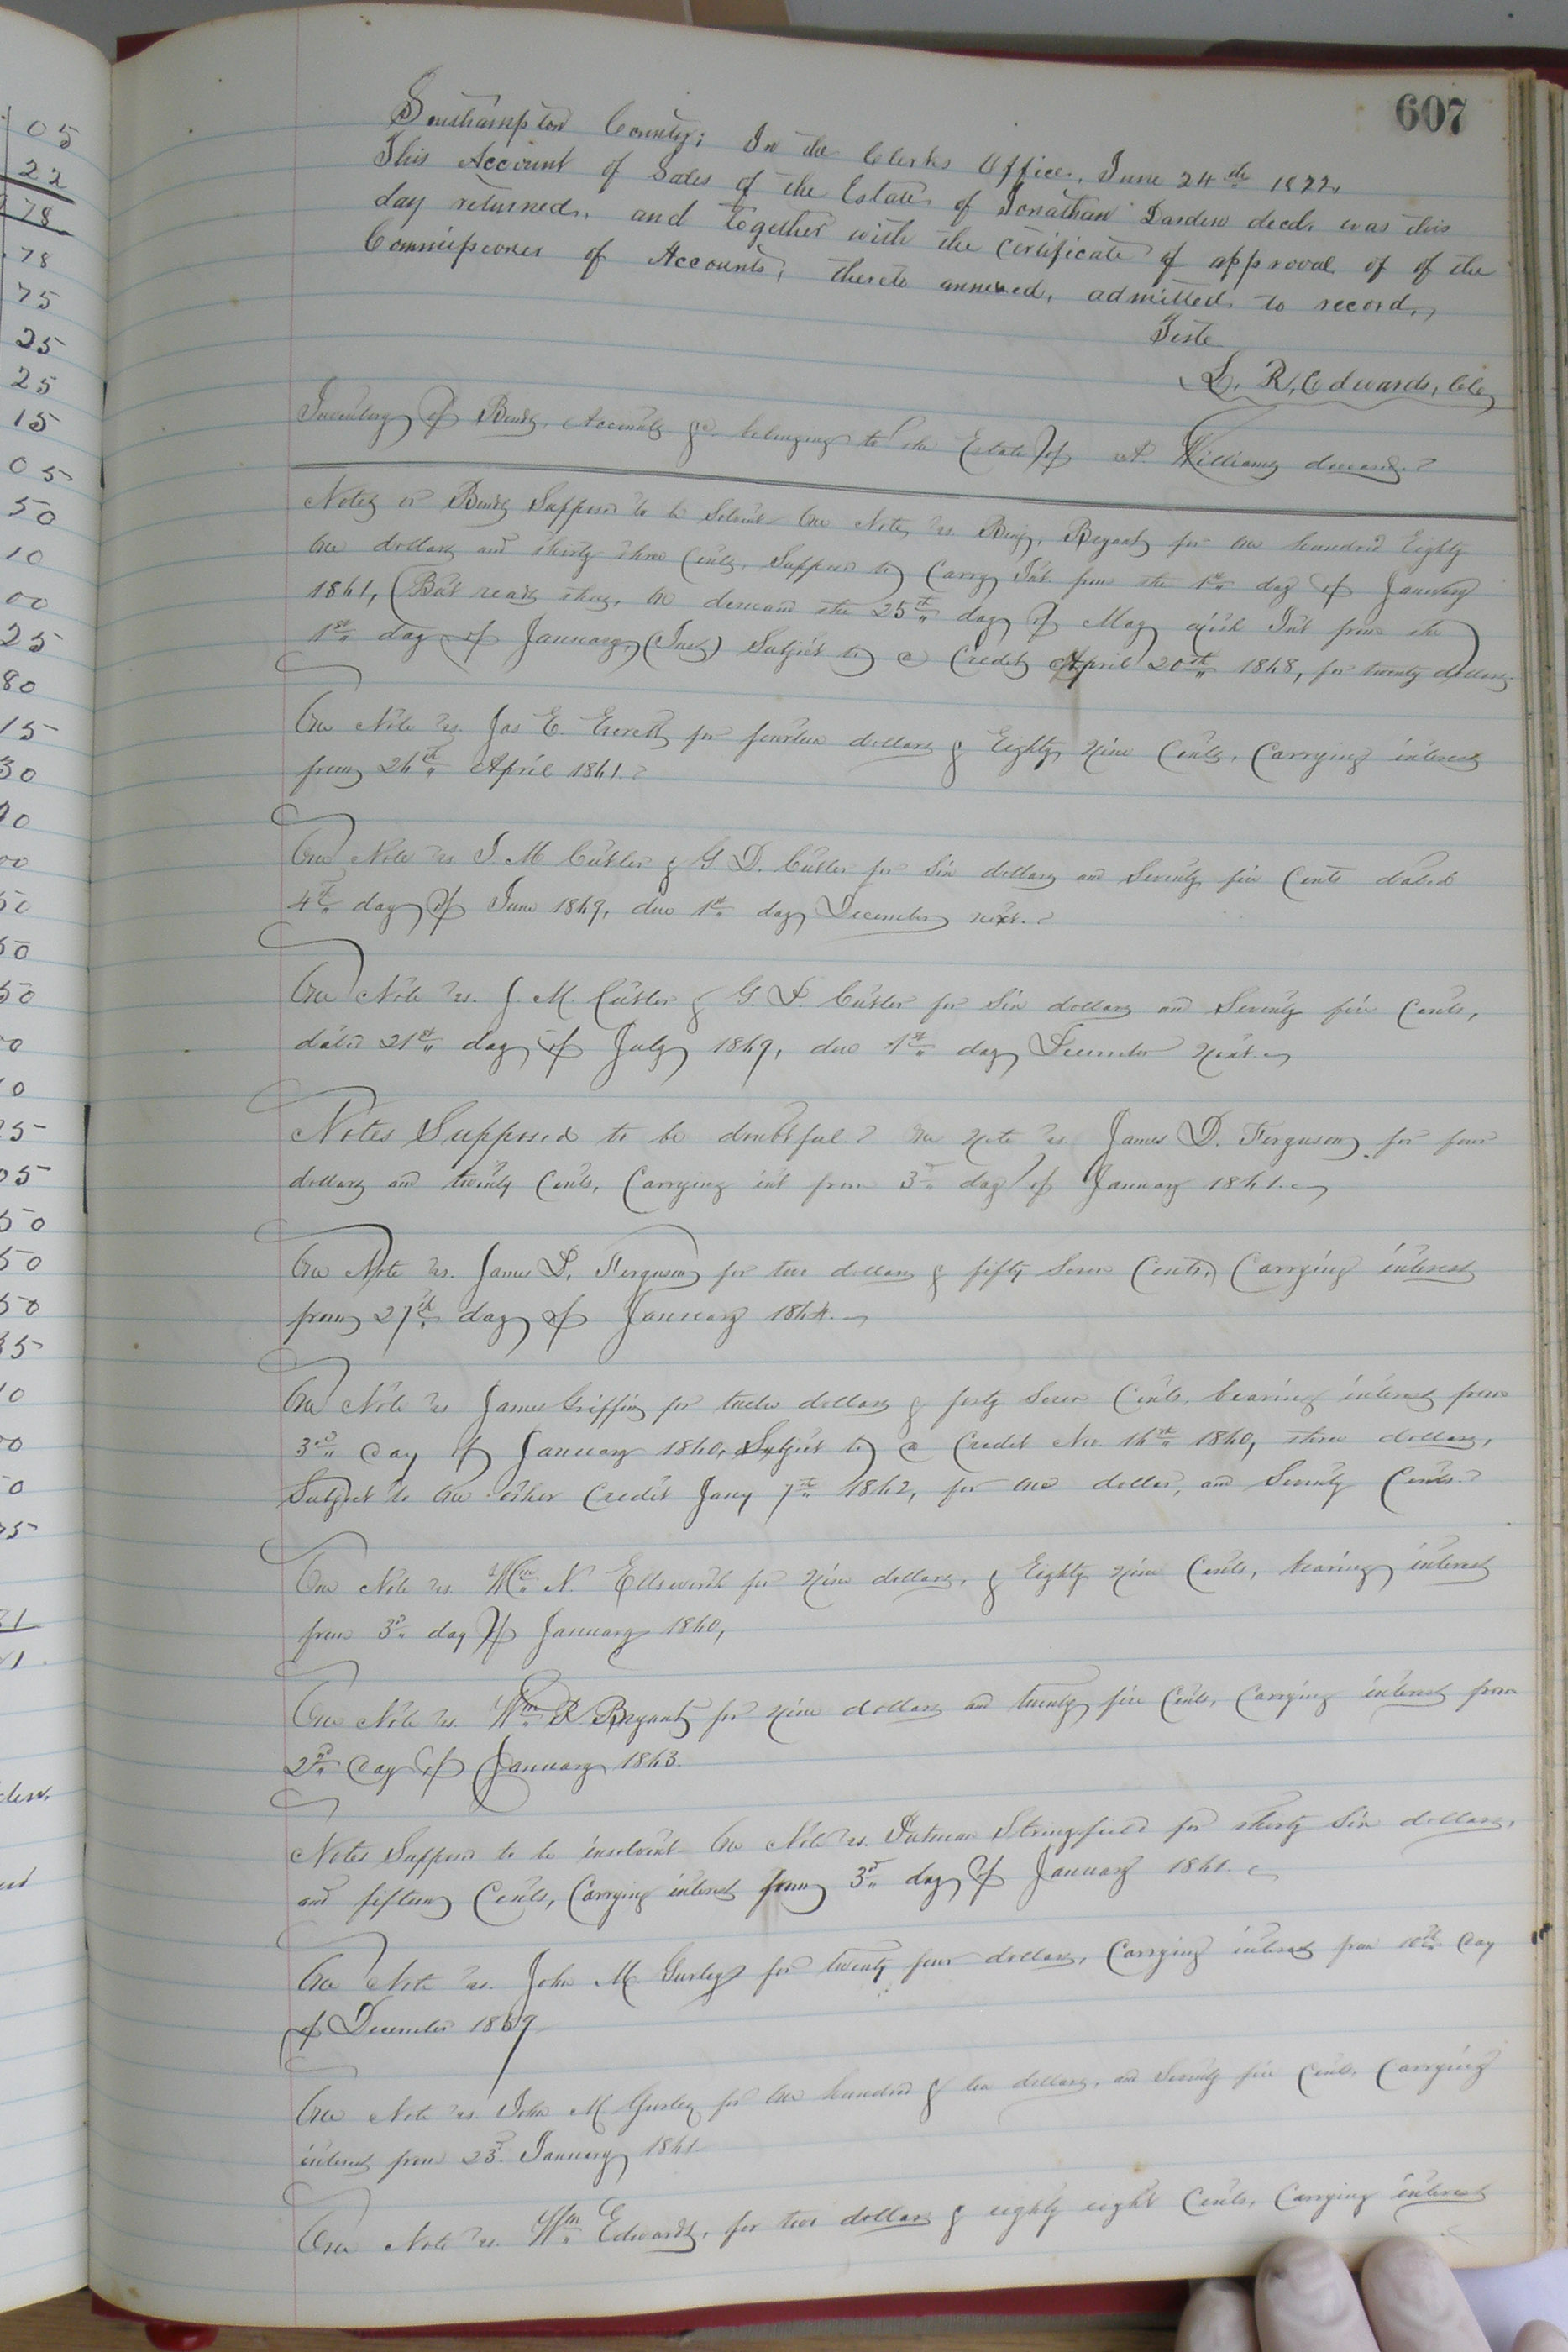 607
Southampton County; In the Clerks Office, June 24th 1872,
This Account of Sales of the Estate of Jonathan Darden decd. was this
day returned, and together with the certificate of approval of of the
Commissioner of Accounts, thereto annexed, admitted to record,
Teste
L. R. Edwards, Clk
Inventory of Bonds, Accounts &c. belonging to the Estate of A. Williams deceased.
Notes or Bonds Supposed to be Solvent One Note vs Benj. Bryant for one hundred Eighty
One dollars and thirty three Cents, Supposed to Carry Int. from the 1st day of January
1861, (But reads thus, on demand the 25th day of May with Int from the
1st day of January, ) Subject to a Credit April 20th 1868, for twenty dollars.
One Note vs. Jas E. Everett for fourteen dollars & Eighty Nine Cents, Carrying interest
from 26th April 1861.
One Note vs J. M Cutler & G. D. Cutler for Six dollars and Seventy five Cents dated
4th day of June 1869, due 1st day December next.
One Note vs. J. M. Cutler & G. D. Cutler for Six dollars and Seventy five Cents,
dated 21st day of July 1869, due 1st day December Next.
Notes Supposed to be doubtful. One Note vs James D. Ferguson for four
dollars and twenty Cents, Carrying int from 3rd day of January 1861.
One Note vs. James D. Ferguson for two dollars & fifty Seven Cents, Carrying interest
from 27th day of January 1864.
One Note vs James Griffin for twelve dollars & forty Seven Cents, bearing interest from
3rd day of January 1860, Subject to a Credit Nov 16th 1860, three dollars,
Subject to One other Credit Jany 7th 1862, for one dollar, and Seventy Cents.
One Note vs. Wm. N. Ellsworth for Nine dollars, & Eighty Nine Cents, bearing interest
from 3rd day of January 1860,
One Note vs. Wm D. Bryant for Nine dollars and twenty five Cents, Carrying interest from
2nd day of January 1863.
Notes Supposed to be insolvent One Note vs. Putman Stringfield for thirty Six dollars,
and fifteen Cents, Carrying interest from 3rd day of January 1861.
One Note vs. John M. Gurley for twenty four dollars, Carrying interest from 10th day
of December 1859
One Note vs. John M. Gurley for One hundred & ten dollars, and Seventy five Cents, Carrying
interest from 23rd. January 1861
One Note vs. Wm. E Edwards, for two dollars & eighty eight Cents, Carrying interest